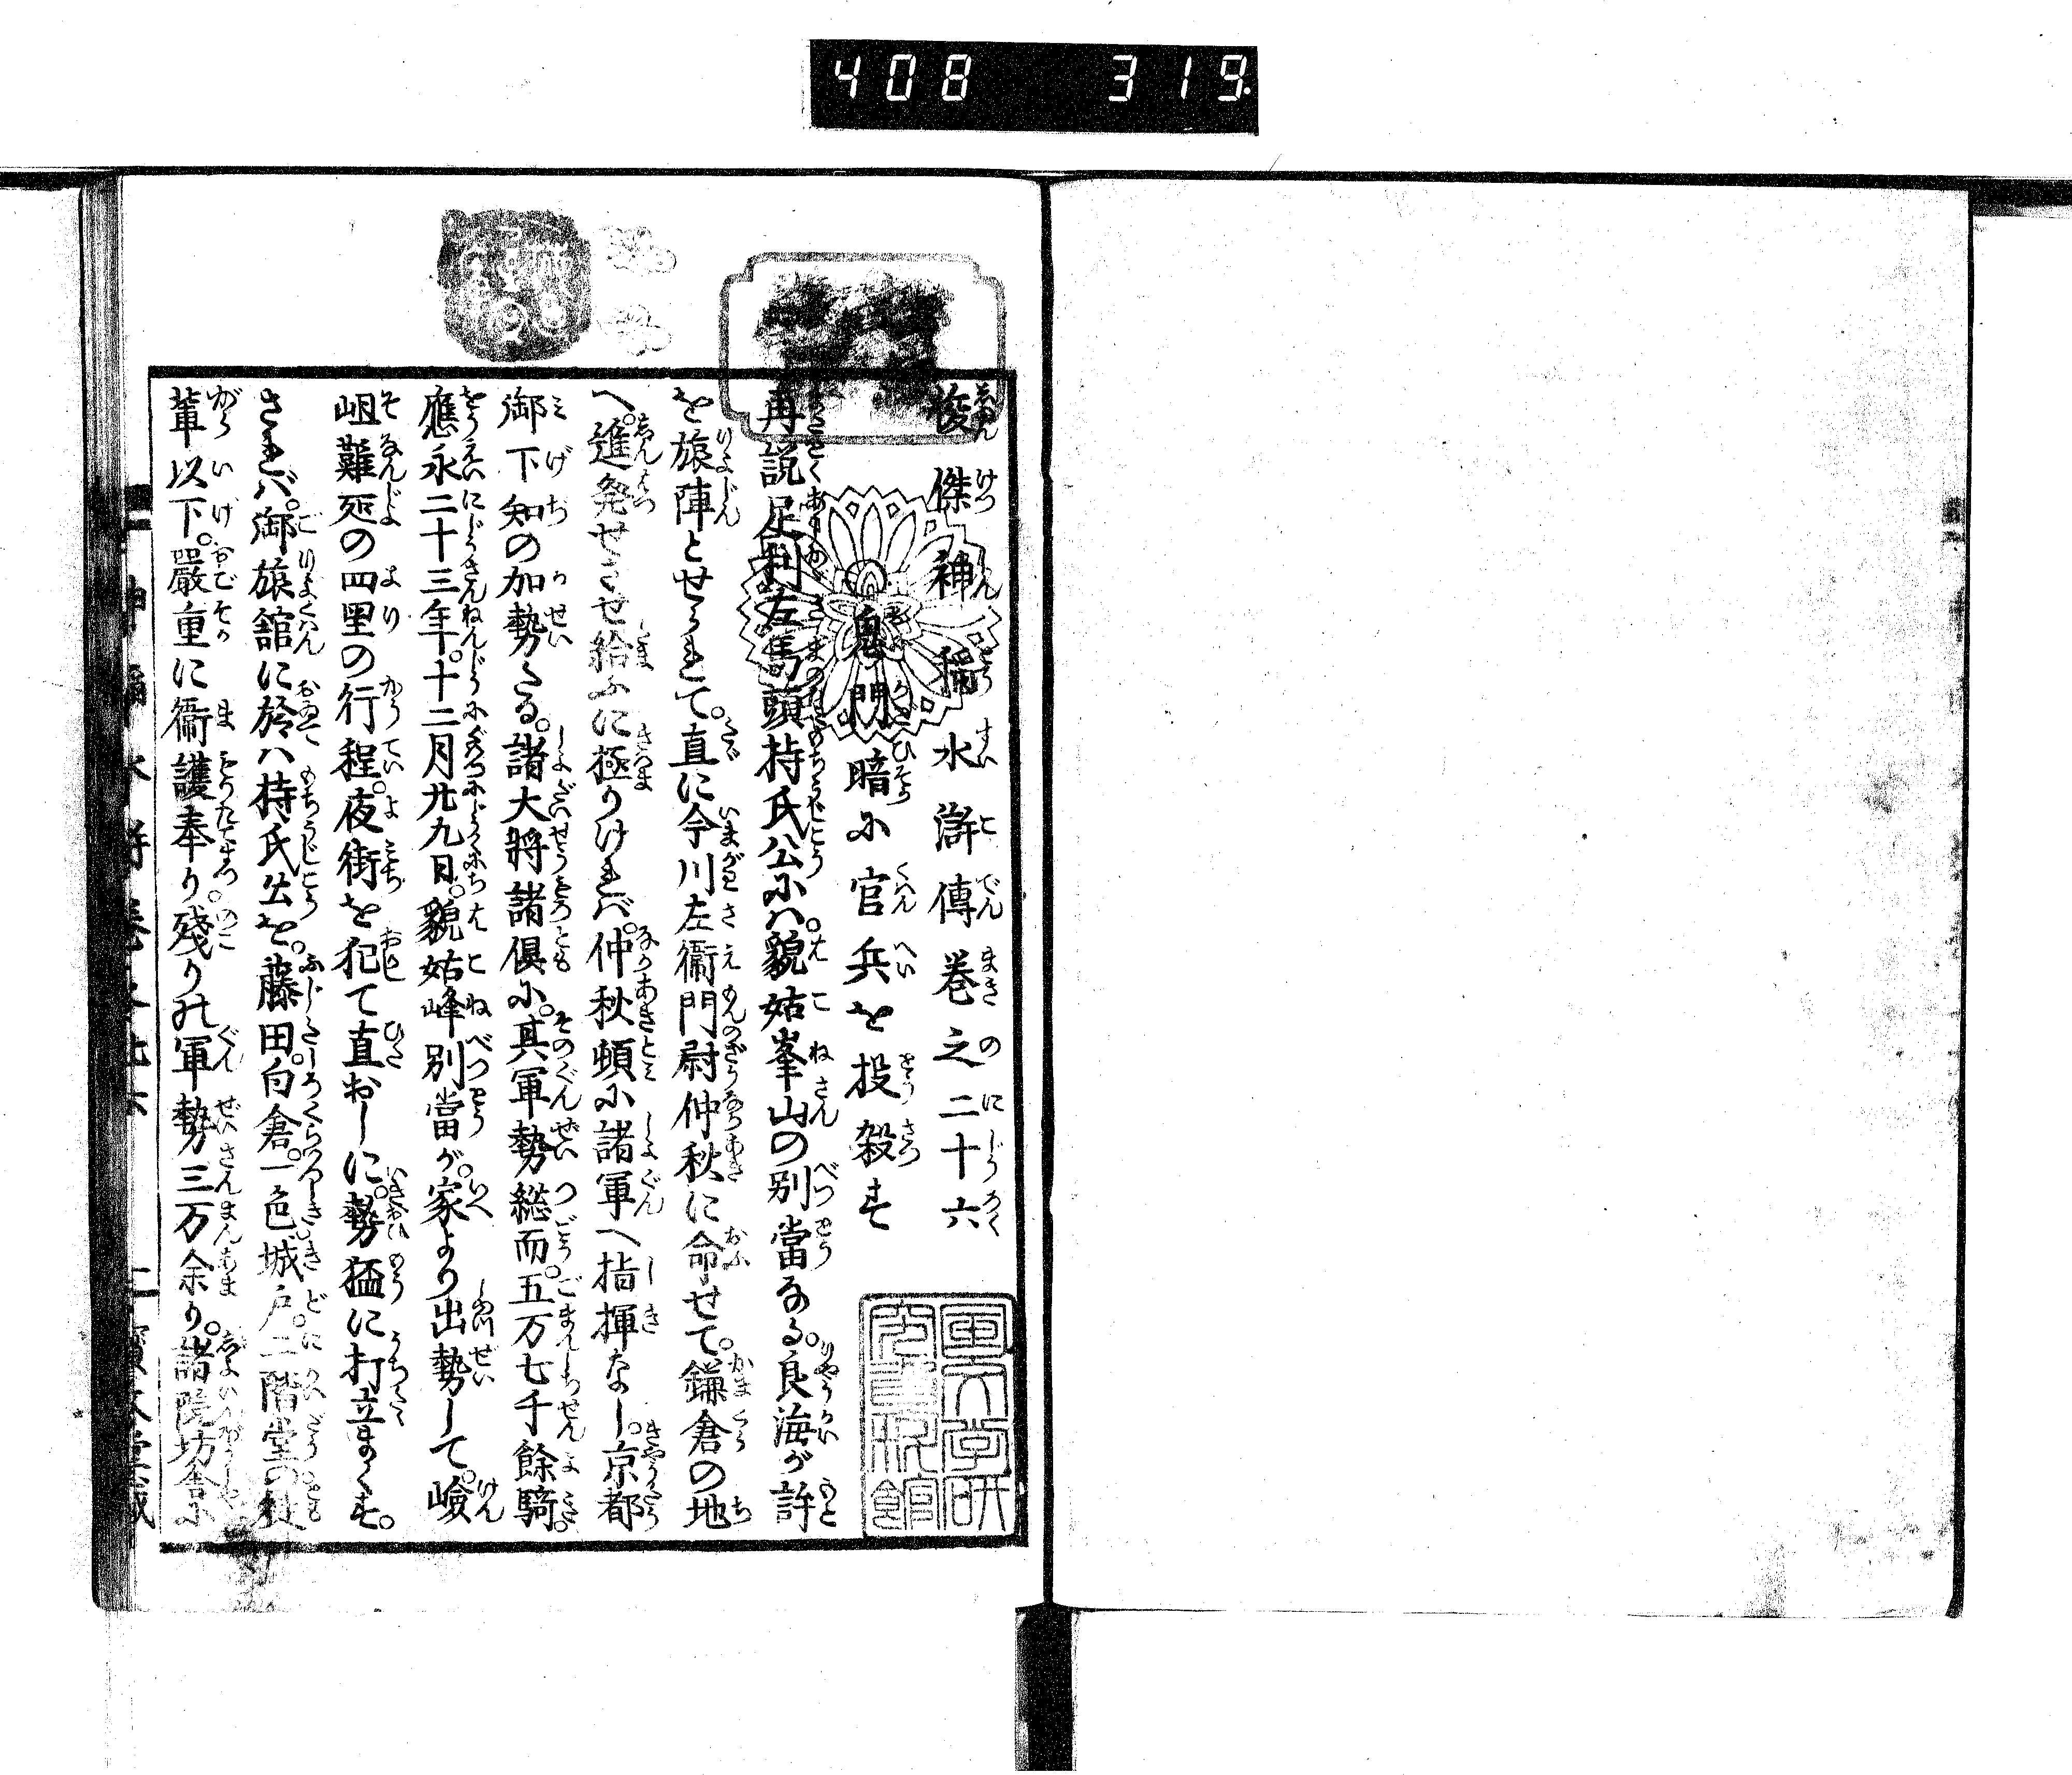 408 319
俊傑神稲水滸傳巻之二十六
鬼門暗に官兵を投殺す
再説足利左馬頭持氏公にハ。貌姑峯山の別當なる。良海が許
を旅陣とせられて。直に今川左衞門尉仲秋に命せて。鎌倉の地
へ。進発せさせ給ふに極りけれバ。仲秋頓に諸軍へ指揮なし。京都
御下知の加勢たる。諸大將諸倶に。其軍勢総而。五万七千餘騎。
應永二十三年。十二月廿九日。貌姑峰別當が。家より出勢して。嶮
岨難所の四里の行程。夜街を犯て直おしに。勢猛に打立まくす。
されバ。御旅舘に於ハ持氏公を。藤田。白倉。一色。城戸。二階堂の
輩以下。嚴重に衞護奉り。殘りの軍勢三万余り。諸院坊舎に